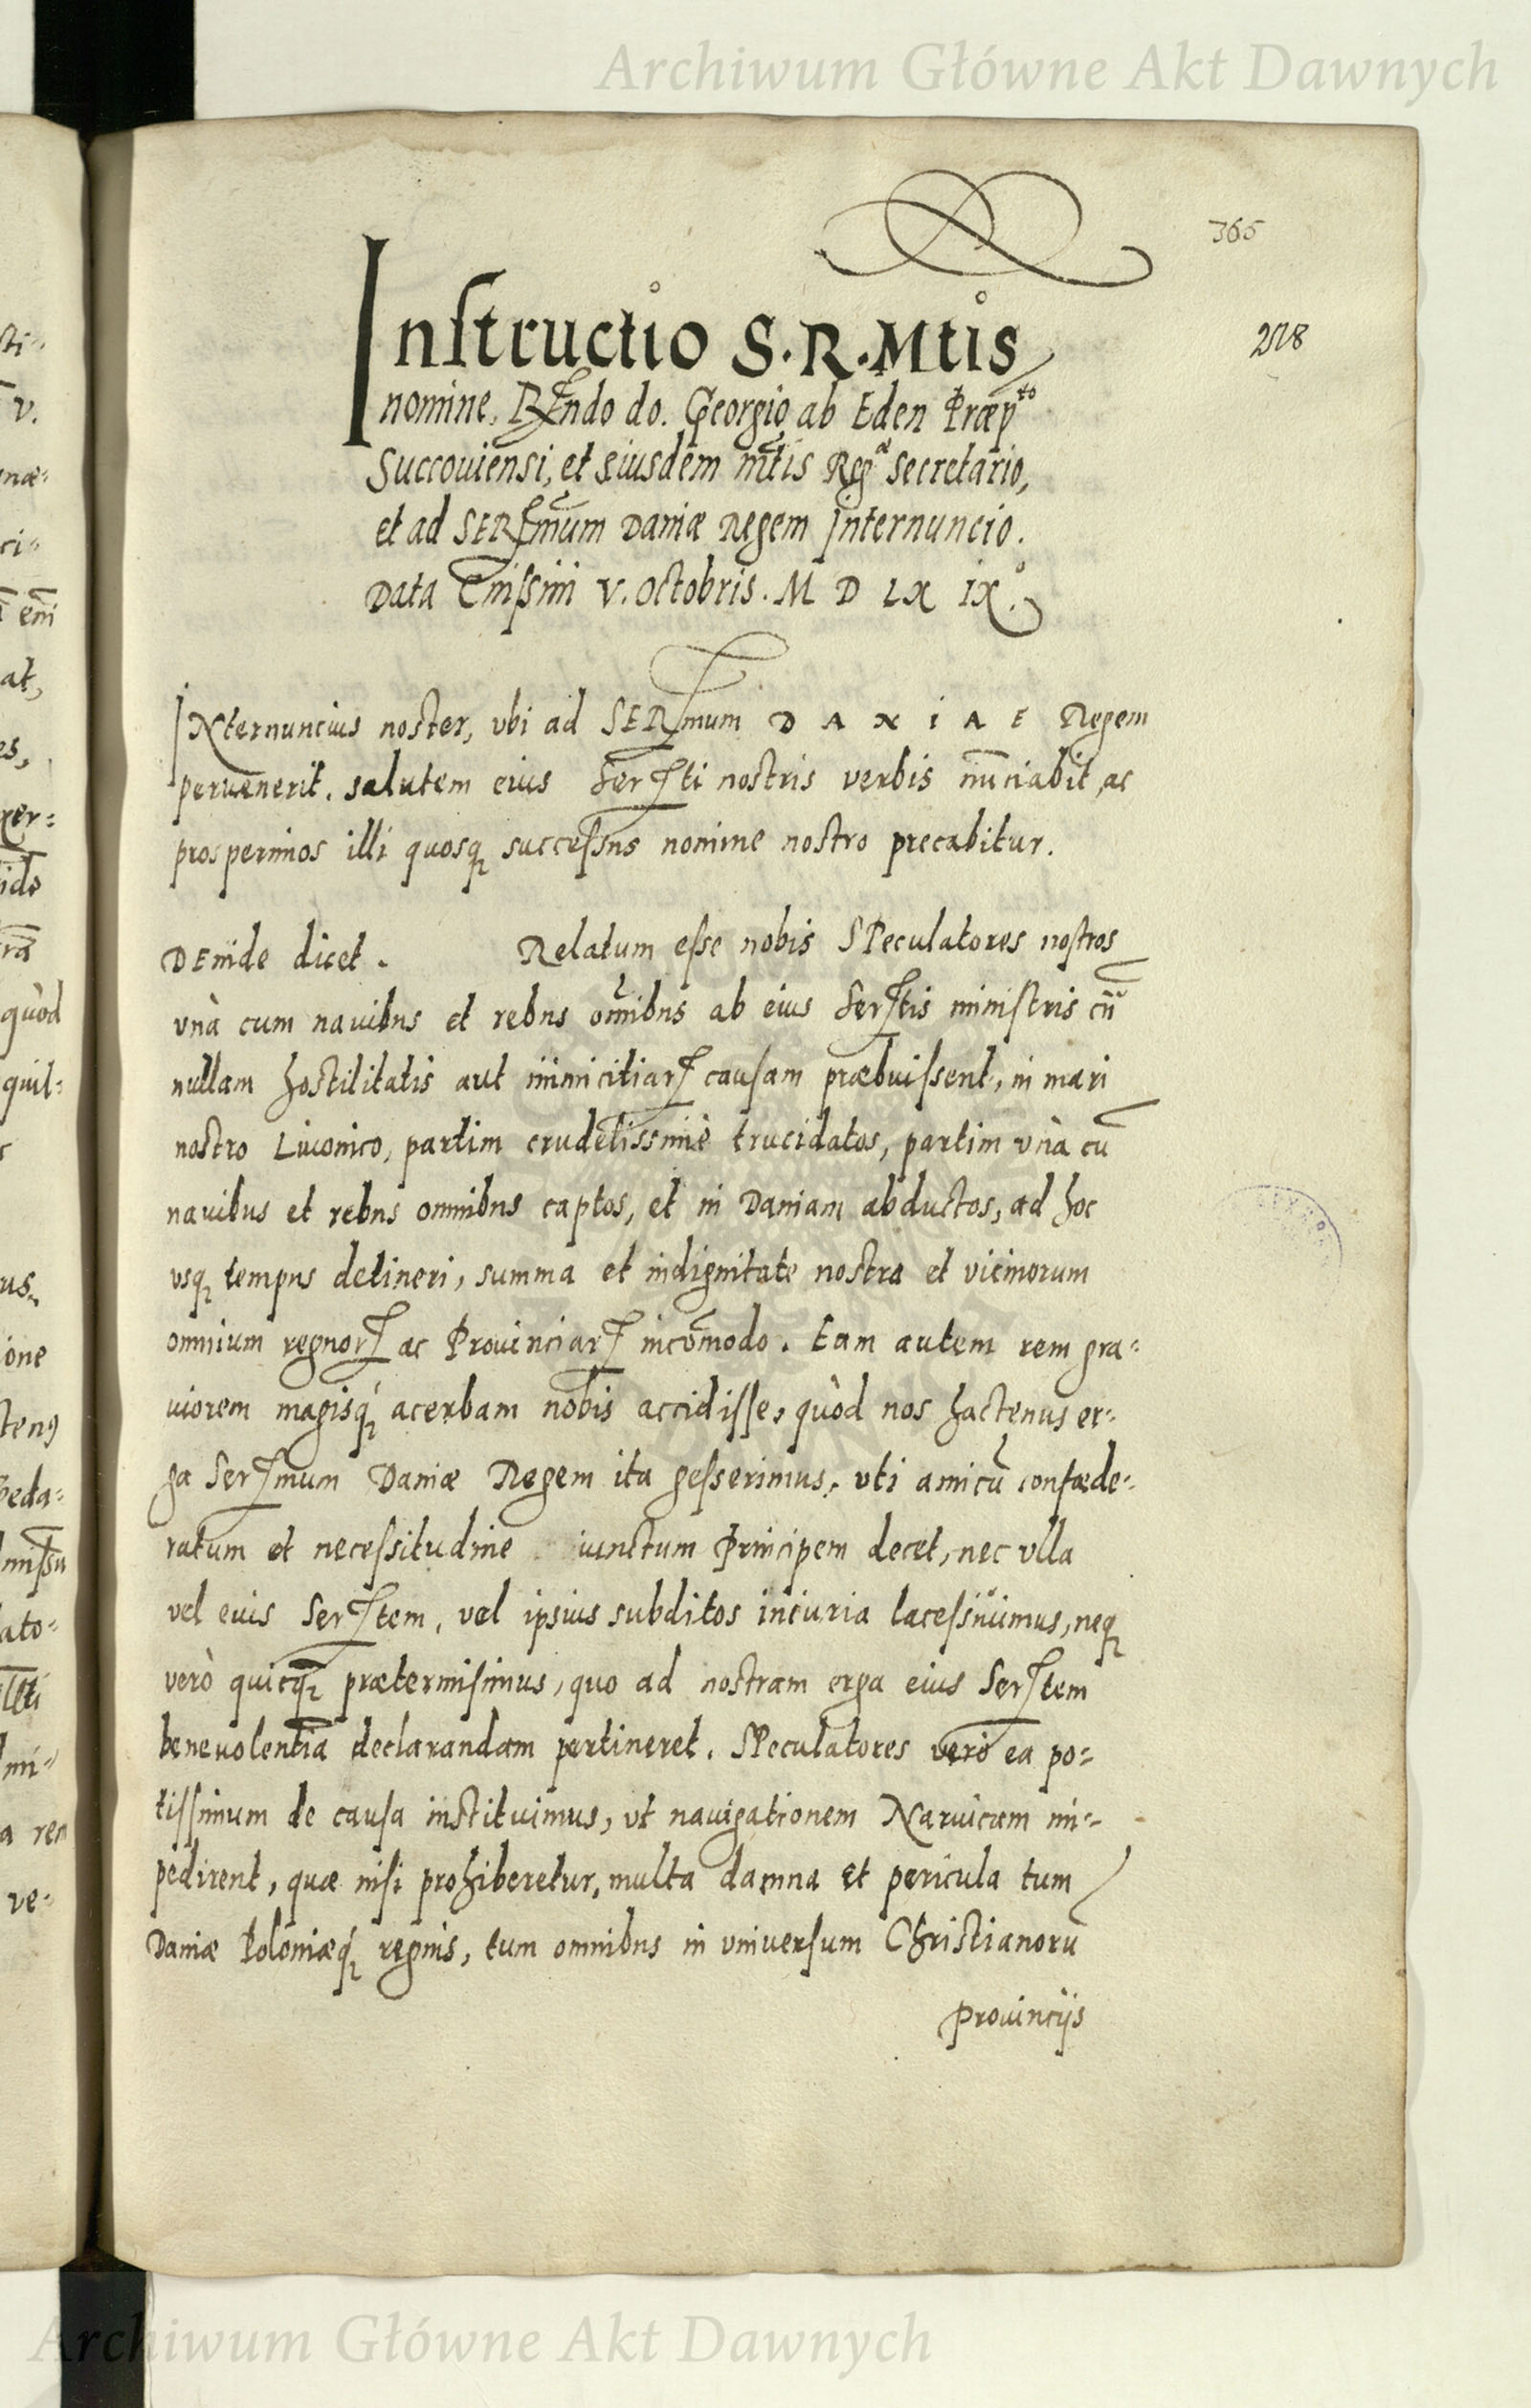 Archiwum Główne Akt Dawnych
365
Instructio S. R. Mtis
nomine, Rndo do. Georgio ab Eden Præpto
Succouiensi, et eiusdem mtis Regæ secretario,
et ad SERmum Daniæ Regem Internuncio.
Data Cnissini V. Octobris. M D LX IX.
INternuncius noster, vbi ad SERmum DANIAE Regem
peruenerit. salutem eius Serti nostris verbis nunciabit, ac
prosperrimos illi quosq successus nomine nostro precabitur.
DEinde dicet. Relatum esse nobis SPeculatores nostros
vnà cum nauibus et rebus omnibus ab eius Sertis ministris cū
nullam hostilitatis aut inimicitiar causam præbuissent, in mari
nostro Liuonico, partim crudelissimè trucidatos, partim vnà cū
nauibus et rebus omnibus captos, et in Daniam abductos, ad hoc
vsq tempus detineri, summa et indignitate nostra et vicinorum
omnium regnor ac Prouinciar incōmodo. Eam autem rem gra-
uiorem magisq́ acerbam nobis accidisse, quòd nos hactenus er-
ga Sermum Daniæ Regem ita gesserimus, vti amicū confæde-
ratum et necessitudine iunctum Principem decet, nec vlla
vel eius Sertem, vel ipsius subditos iniuria lacessiuimus, neq
verò quicq̄ prætermisimus, quo ad nostram erga eius Sertem
beneuolentiā declarandam pertineret. SPeculatores verò ea po-
tissimum de causa instituimus, vt nauigationem Naruicam im-
pedirent, quæ nisi prohiberetur, multa damna et pericula tum
Daniæ Poloniæq́ regnis, tum omnibus in vniuersum Christianorū
Prouincijs
Archiwum Główne Akt Dawnych